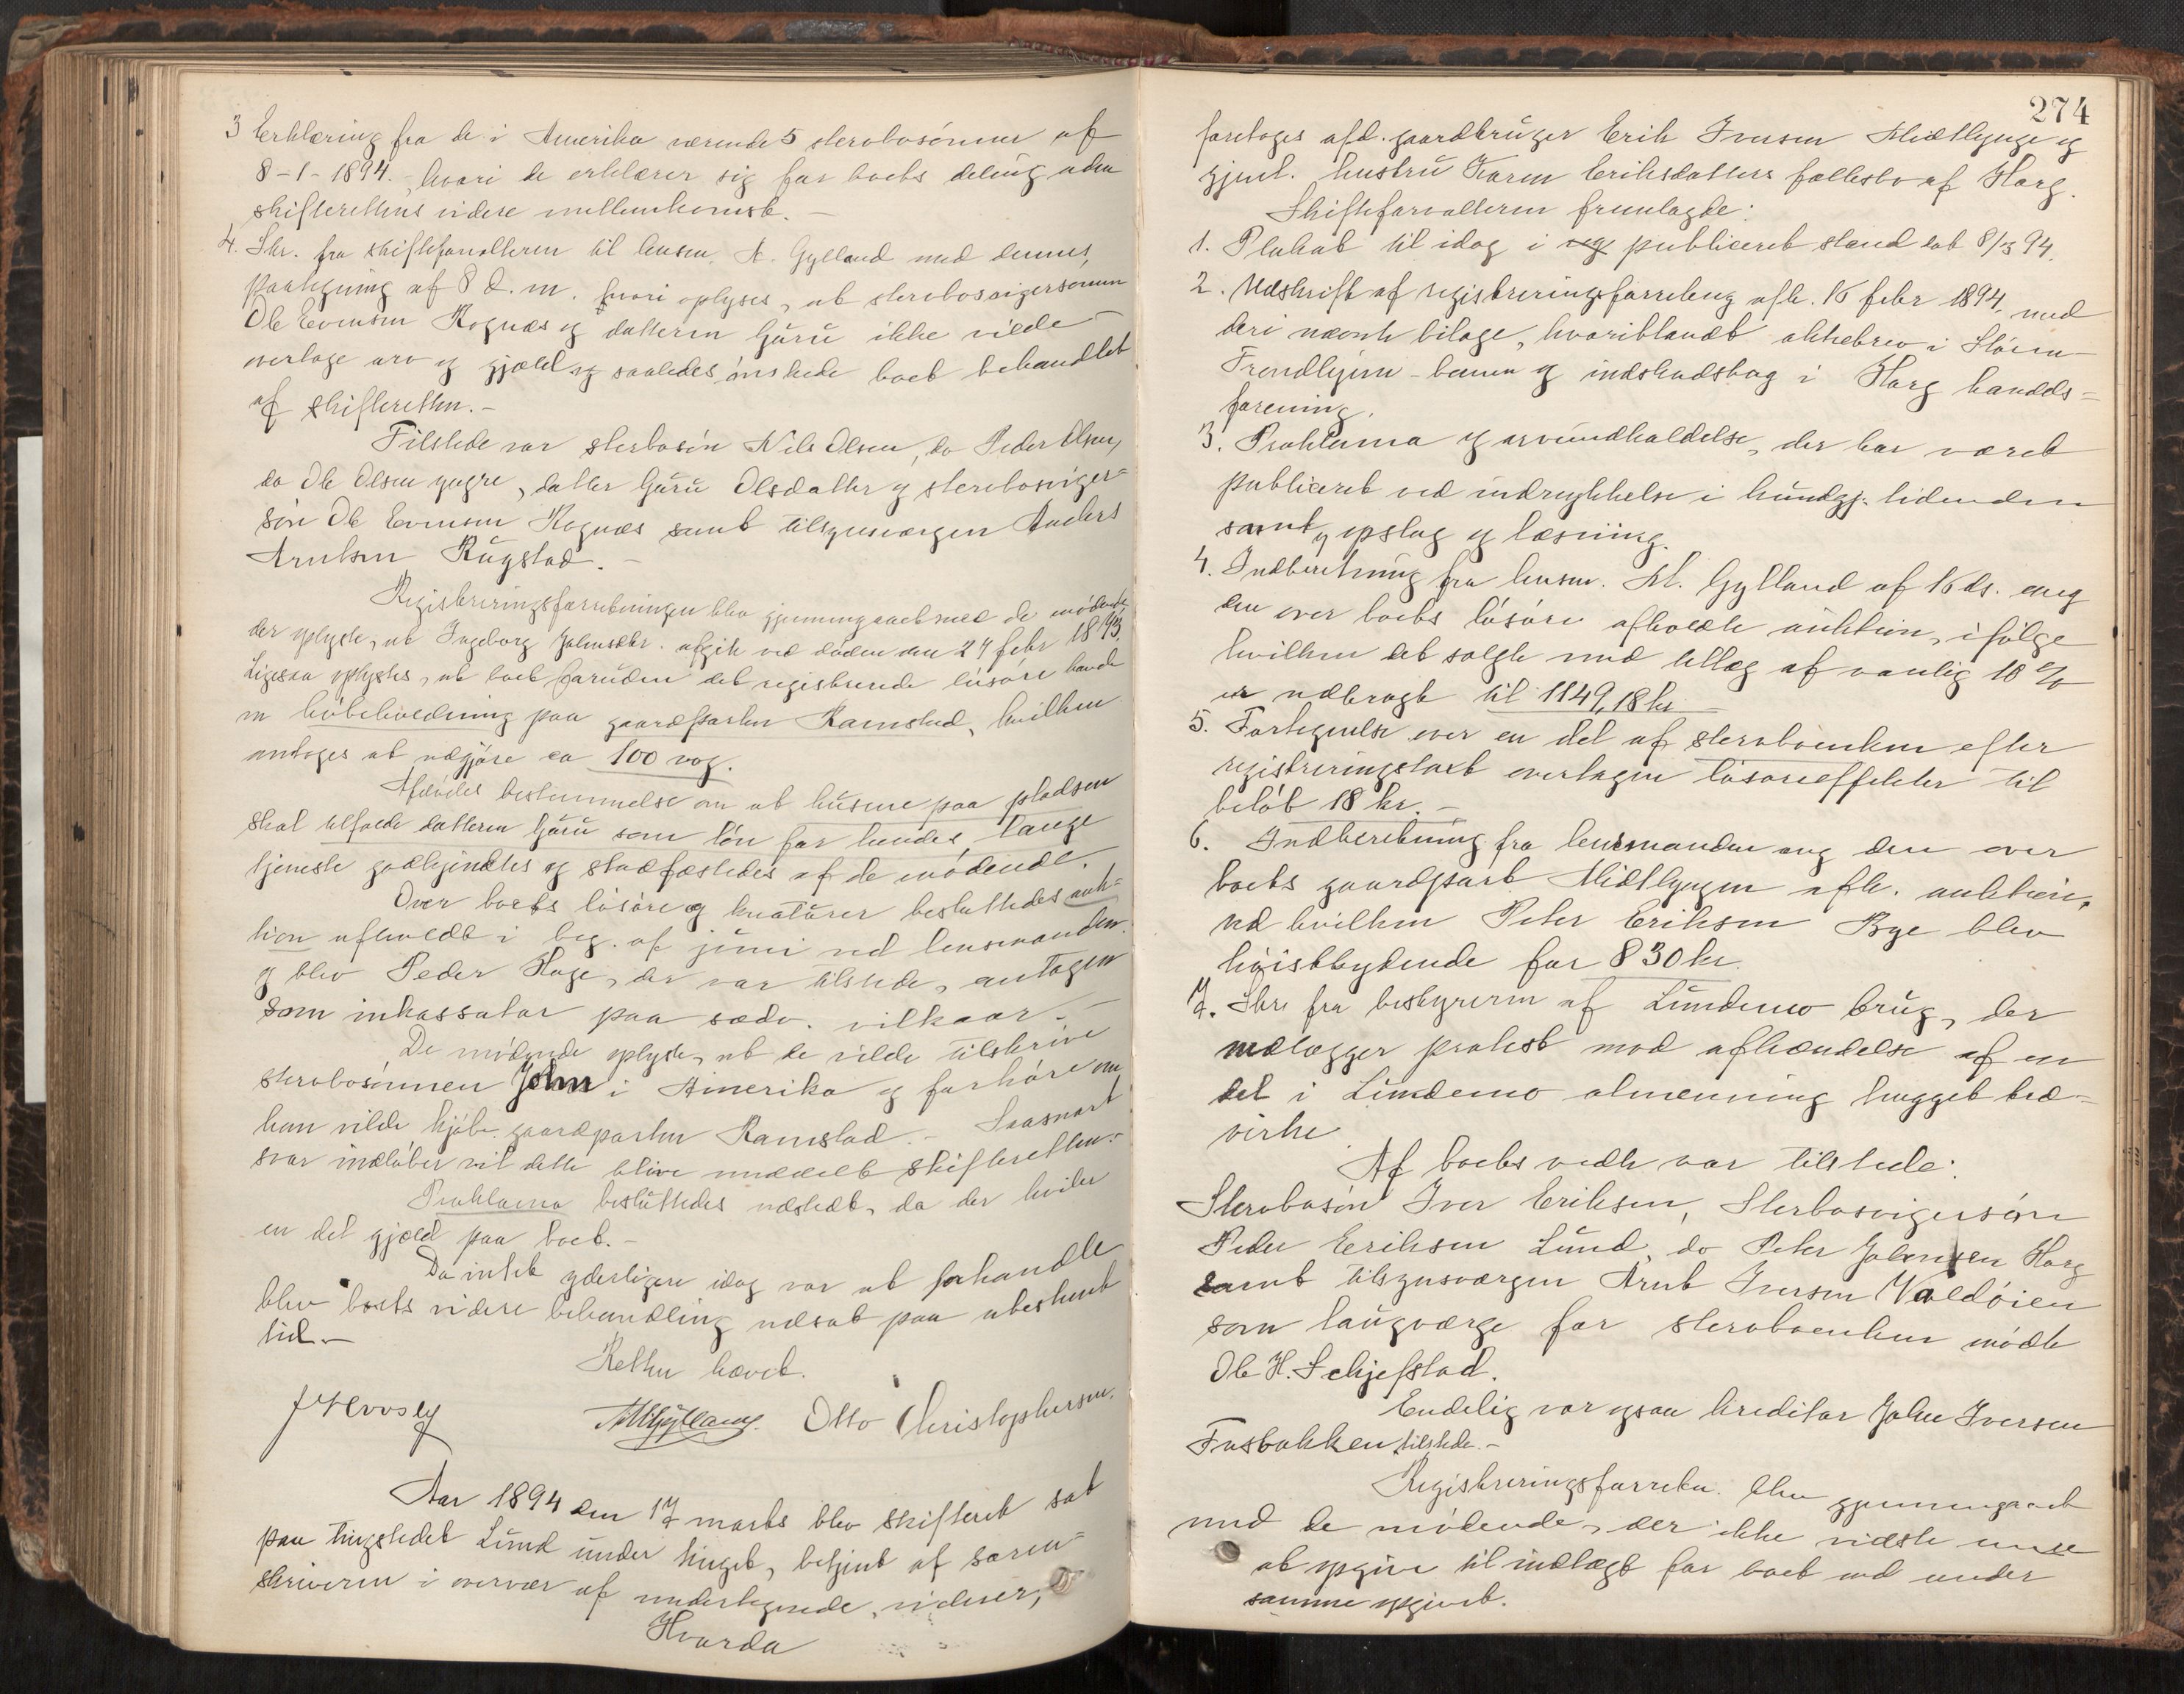 3 Erklæring fra de i Amerika værende 5 stervbosønner af
8-1-1894. hvori de erklærer sig for boets deling uden
skifterettens videre mellemkomst. -
4. Skr. fra skifteforvalteren til lensm. A. Gylland med dennes
paategning af 8 d. m. hvori oplyses, at stervbosvigersønnen
Ole Evensen Rognæs og datteren Guru ikke vilde
overtage arv og gjæld og saaledes ønskede boet behandlet
af skifteretten. -
Tilstede var sterbosøn Nils Olsen, do Peder Olsen,
do Ole Olsen yngre, datter Guru Olsdatter og stervbosviger=
søn Ole Evensen Rognæs samt tilsynsværgen Anders
Arntsen Rugstad. -
Registreringsforretningen blev gjennemgaaet med de mødende
der oplyste, at Ingeborg Johnsdtr. afgik ved døden den 24 febr 1893.
Ligesaa oplystes, at boet foruden det registrerede løsøre havde
en høbeholdning paa gaardparten Ramstad, hvilken
antoges at udgjøre ca 100 vog.
Afdødes bestemmelse om at husene paa pladsen
skal tilfalde datteren Guru som løn for hendes lange
tjeneste godkjendtes og stadfæstedes af de mødende.
Over boets løsøre og kreaturer besluttedes auk=
tion afholdt i beg. af juni ved lensmanden.
og blev Peder Hage, der var tilstede, antagen
som inkassator paa sædv. vilkaar. -
De mødende oplyste, at de vilde tilskrive
stervbosønnen John i Amerika og forhøre om
han vilde kjøbe gaardparten Ramstad. - Saasnart
svar indløber vil dette blive meddelt skifteretten. -
Proklama besluttedes udstedt, da der hviler
en del gjæld paa boet. -
Da intet yderligere idag var at forhandle
blev boets videre behandling udsat paa ubestemt
tid. -
Retten hævet.
AGylland. Otto Christophersen.
Aar 1894 den 17 marts blev skifteret sat
paa tingstedet Lund under tinget, betjent af soren=
skriveren i overvær af undertegnede vidner,
Hvorda
274
foretoges afd. gaardbruger Erik Iversen Midtlynge og
gjenl. hustru Karen Eriksdatters fællesbo af Harg.
Skifteforvalteren fremlagde:
1. Plakat til idag i publiceret stand dat 8/3 94.
2. Udskrift af registreringsforretning afh. 15 febr 1894, med
deri nævnte bilage, hvoriblandt aktiebrev i Støren
Trondhjem-banen og indskudsbog i Harg handels=
forening.
3. Proklama og arveindkaldelse, der har været
publiceret ved indrykkelse i kundgj. tidenden
samt opslag og læsning.
4. Indberetning fra lensm. A. Gylland af 15 ds. ang
den over boets løsøre afholdte auktion, ifølge
hvilken det solgte med tillæg af vanlig 10 %
er udbragt til 1149,18 kr
5. Fortegnelse over en del af stervboenken efter
registreringstaxt overtagen løsøreeffekter til
beløb 18 kr. -
6. Indberetning fra lensmanden ang den over
boets gaardpart Midtlyngen afh. auktion,
ved hvilken Peter Eriksen Bye blev
høistbydende for 830 kr.
7. Skr fra bestyreren af Lundemo brug, der
nedlægger protest mod afhændelse af en
del i Lundemo almenning hugget ted-
virke.
Af boets vedk. var tilstede:
Stervbosøn Iver Eriksen, Sterbosvigersøn
Peder Eriksen Lund, do Peter Johnsen Harg
samt tilsynsværgen Arnt Iversen Valdøien
som laugværge for stervboenken mødte
Ole H. Schjefstad.
Endelig var ogsaa kreditor John Iversen
Fusbakken tilstede. -
Registreringsforretn. blev gjennemgaaet
med de mødende, der ikke vidste mere
at opgive til indtægt for boet end under
samme opgivet.